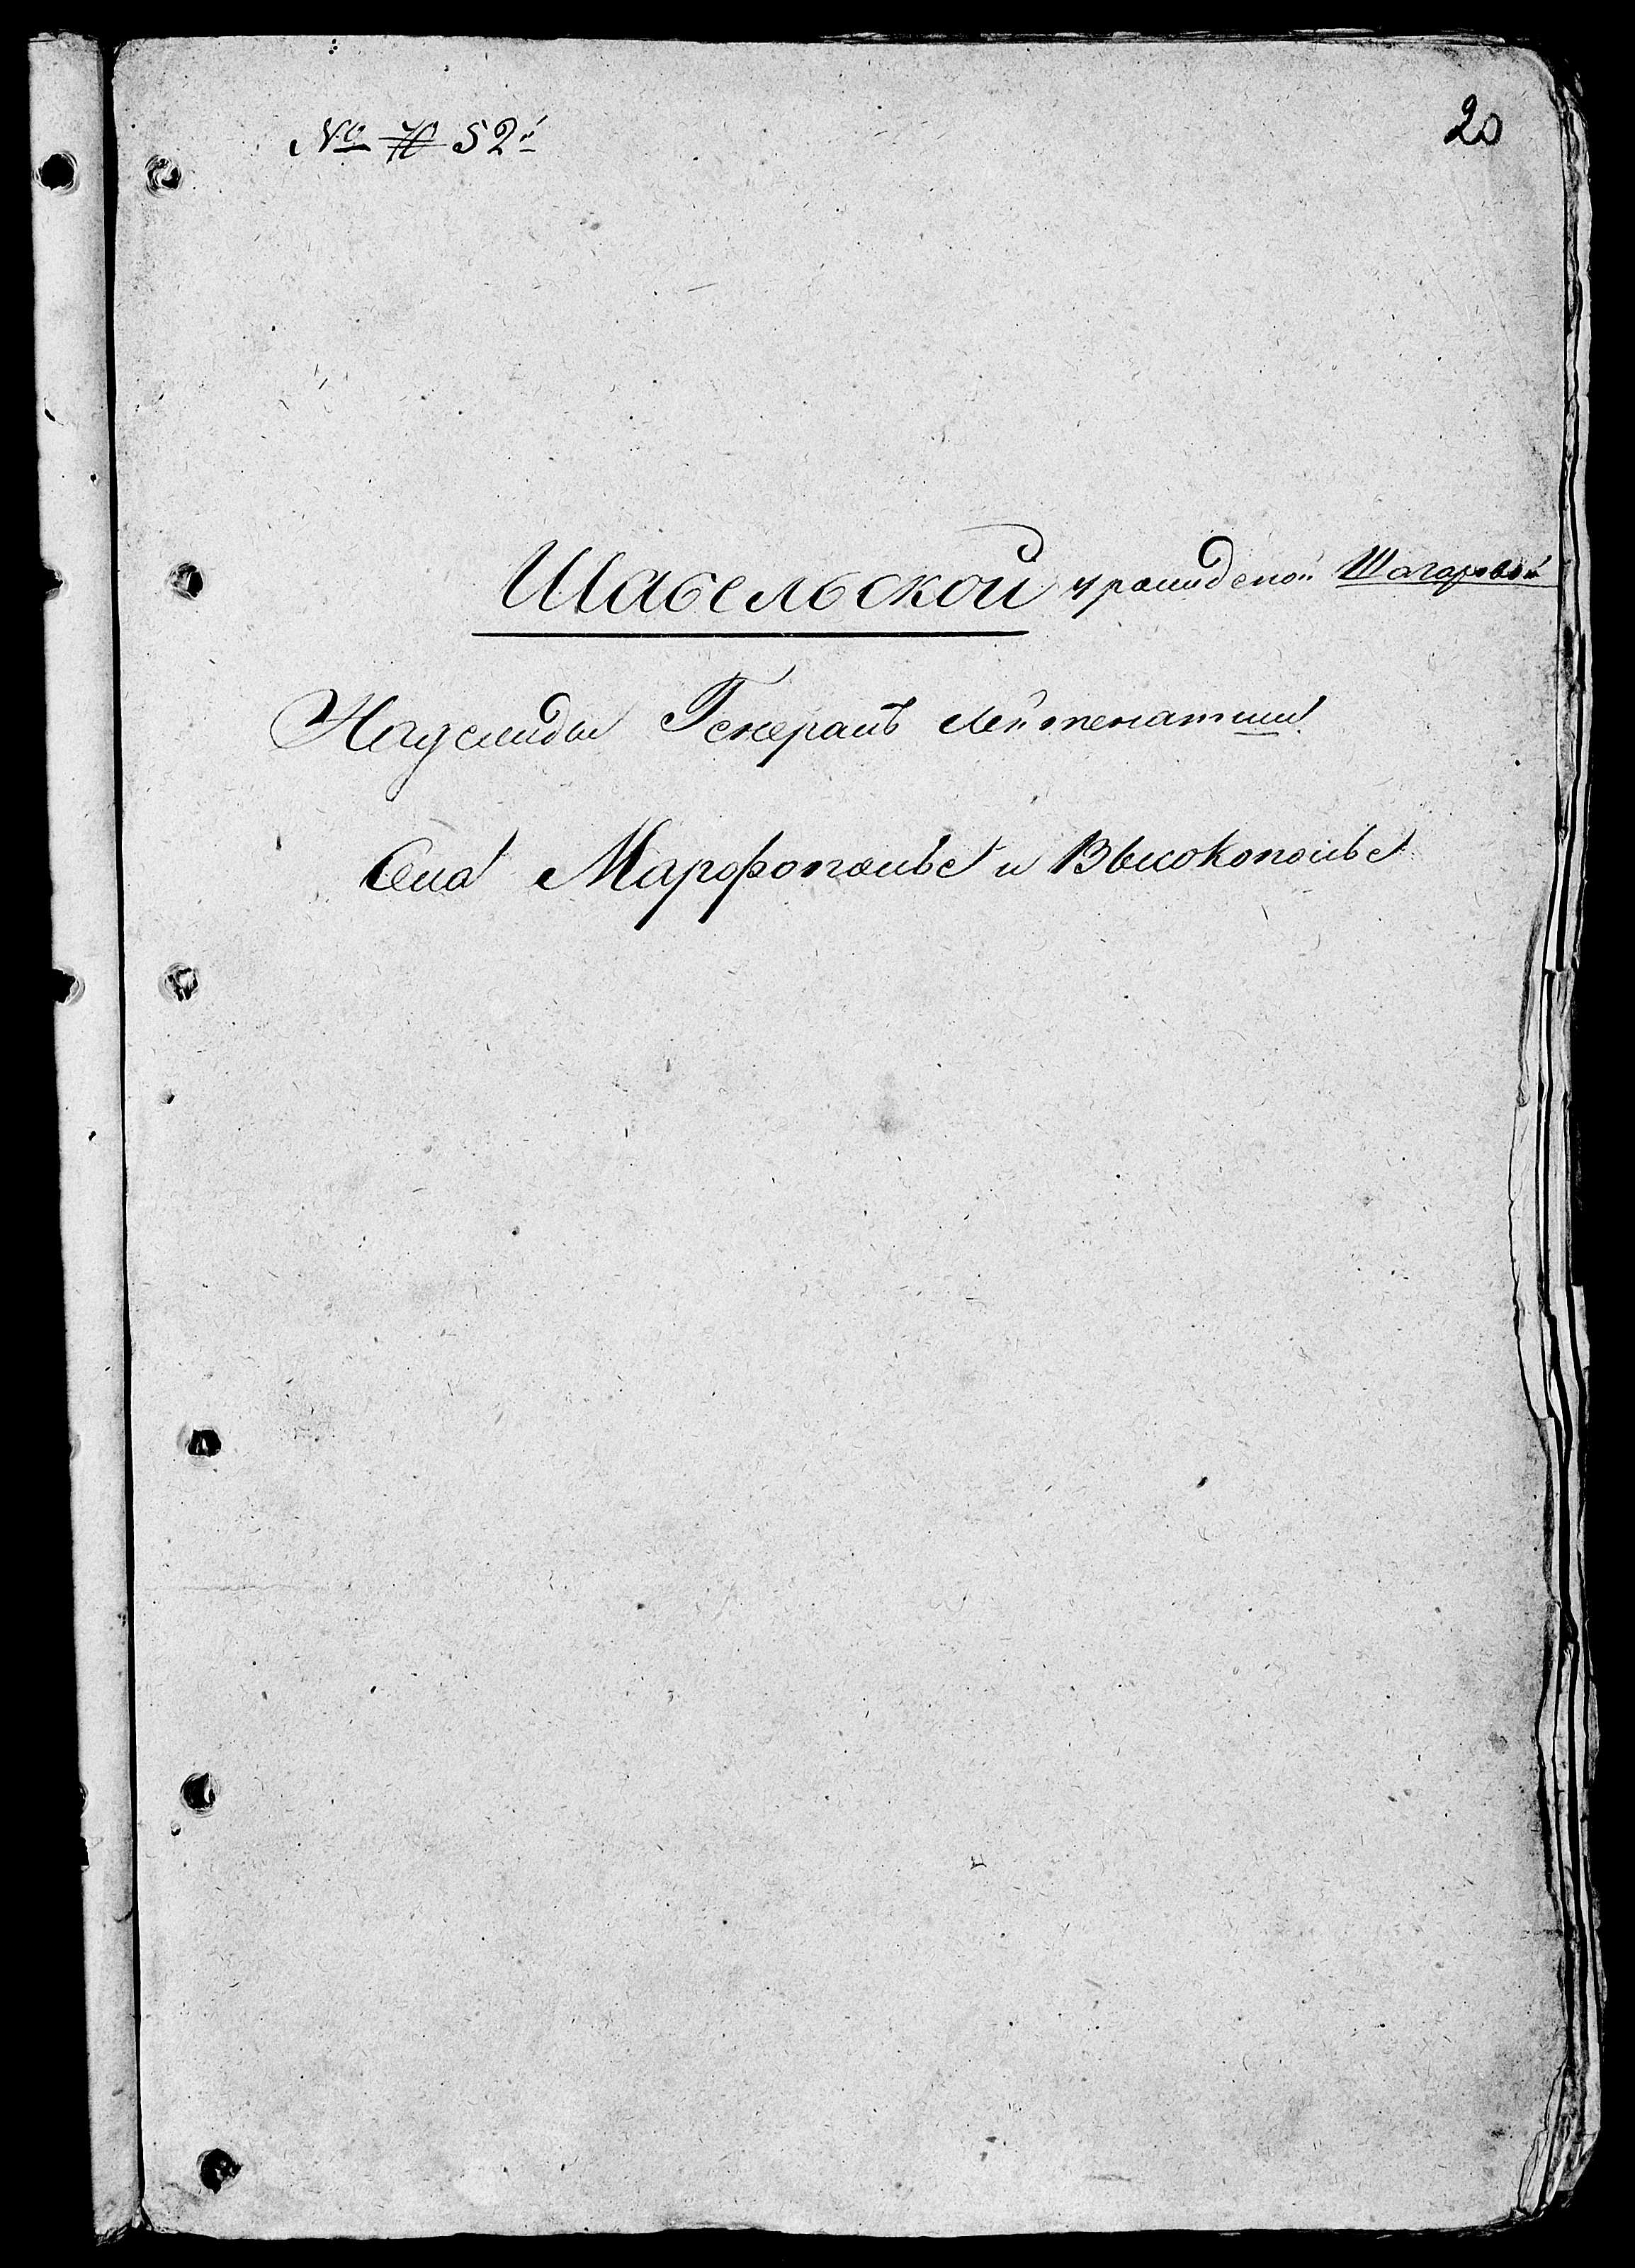 № 52й
20
Шабельской урожденой Шагаровой
Надежды Генералъ Лейтенатши
Села Марфополье и Высокополье